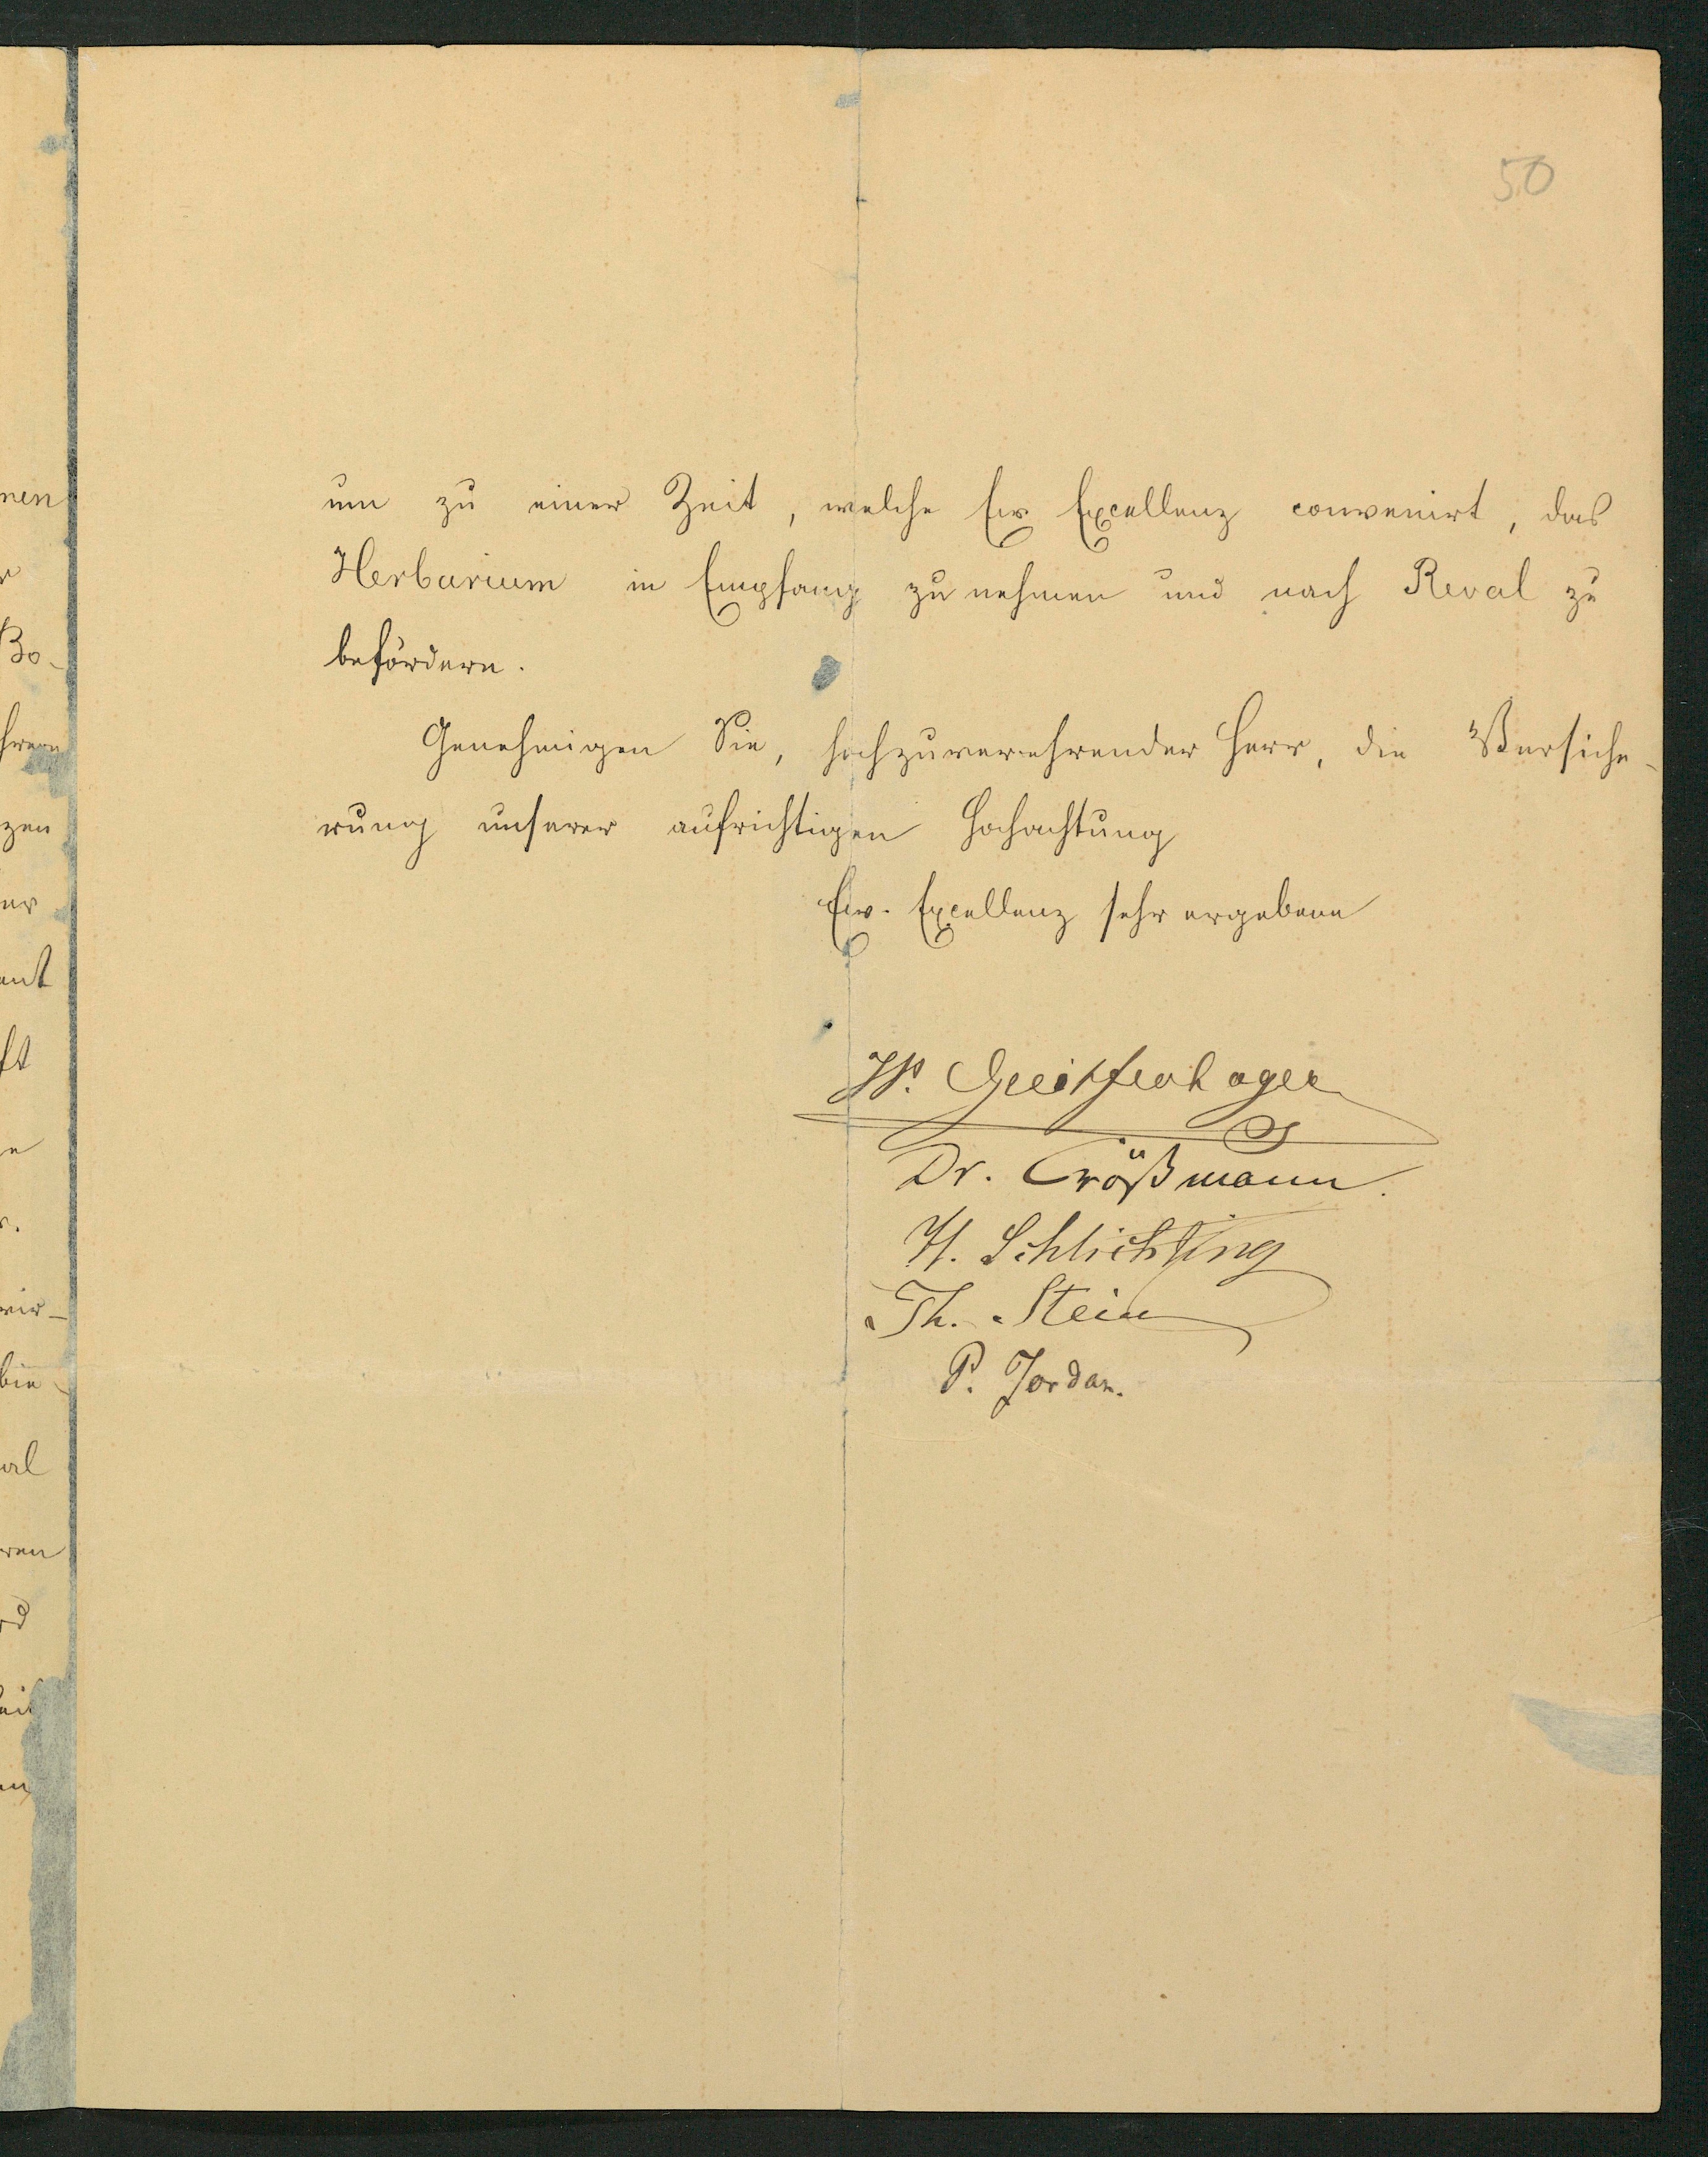 50
um zu einer Zeit, welche Ew Excellenz convenirt, das
Herbarium in Empfang zu nehmen und nach Reval zu
befördern.
Genehmigen Sie, hochzuverehrender Herr, die Versiche-
rung unserer aufrichtigen Hochachtung
Ew. Excellenz sehr ergebene
W. Greiffenhagen
Dr. Crößmann.
H. Schlichting
Th. Stein
P. Jordan.
nen
Bo-
zen
er
ant
ft
wir-
bin
al
ren